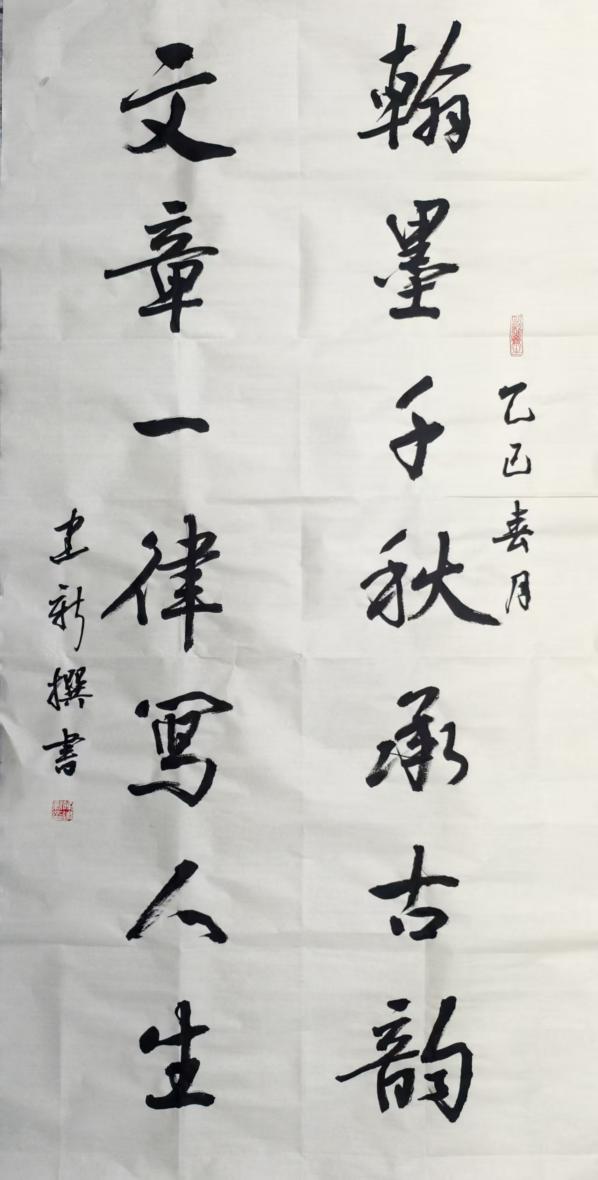 乙巳春月
翰墨千秋承古韵
文章一律写人生
建新撰书